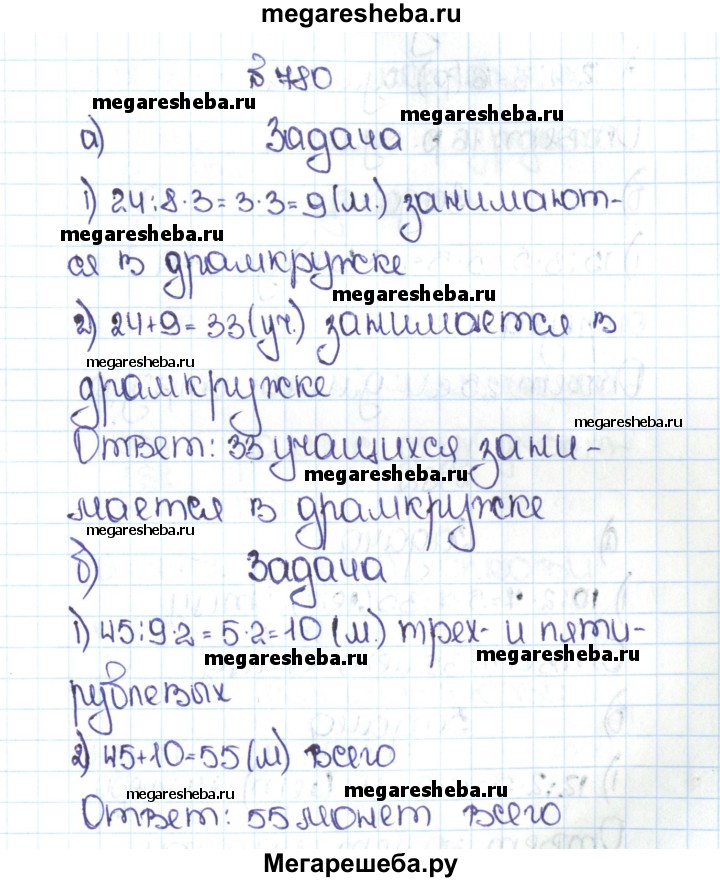 megaresheba.ru
№ 780
megaresheba.ru megaresheba.ru
а) Задача
1) 24:8·3=3·3=9(м.) занимают-
megaresheba.ru
ся в драмкружке
megaresheba.ru
2) 24+9=33(уч.) занимается в
megaresheba.ru
драмкружке
megaresheba.ru
Ответ: 33 учащихся зани-
megaresheba.ru
мается в драмкружке
megaresheba.ru
б) Задача
1) 45:9·2=5·2=10(м.) трех- и пяти-
megaresheba.ru megaresheba.ru
рублевых
2) 45+10=55(м) всего
megaresheba.ru megaresheba.ru
Ответ: 55 монет всего
Мегарешеба.ру